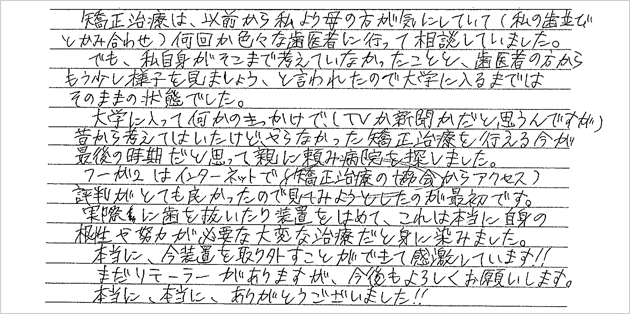 矯正治療は、以前から私より母の方が気にしていて(私の歯並び
とかみ合わせ)何回か色々な歯医者に行って相談していました。
でも、私自身がそこまで考えていなかったことと、歯医者の方から
もう少し様子を見ましょう、と言われたので大学に入るまでは
そのままの状態でした。
大学に入って何かのきっかけで(TVか新聞かだと思うんですが)
昔から考えてはいたけどやらなかった矯正治療を行える今が
最後の時期だと思って親に頼み病院を探しました。
はインターネットで(矯正治療の協会からアクセス)
評判がとても良かったので見てみようとしたのが最初です。
実際に歯を抜いたり装置をはめて、これは本当に自身の
根性や努力が必要な大変な治療だと身に染みました。
本当に、今装置を取り外すことができて感激しています!!
まだリテーラーがありますが、今後もよろしくお願いします。
本当に、本当に、ありがとうございました!!